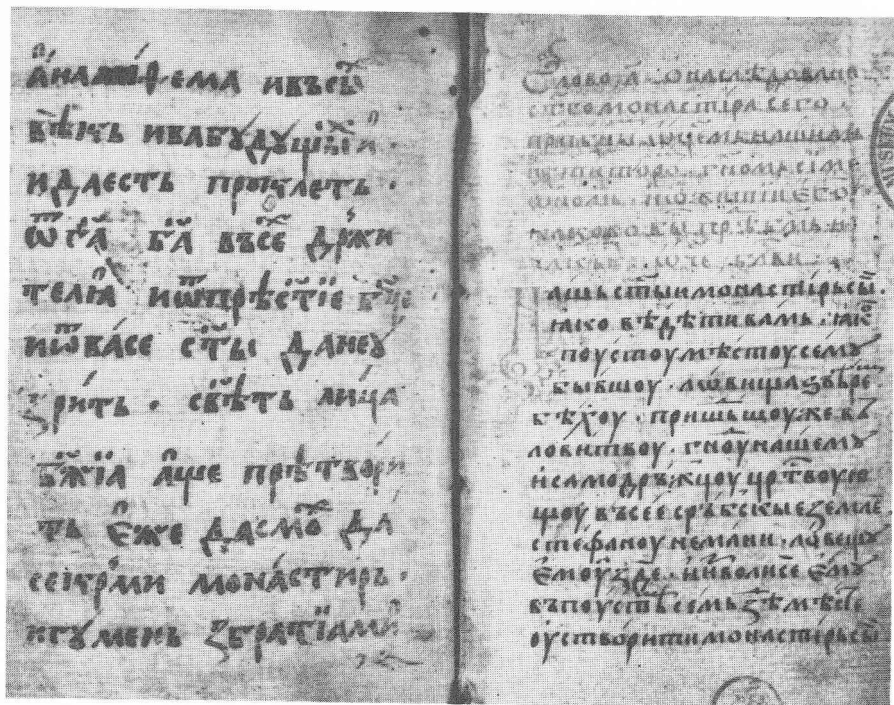 а҆нат҄ема и въ сы
вѣкь и ва бꙋдꙋщїи.
и да есть проклеть.
ѿ га҃ ба҃ въсе дрьжи
телꙗ и ѿ прѣст҃їе бц҃е
и ѿ васе ст҃ы да не ꙋ
зрить. свѣть лица
бж҃їа а҆ще прѣтвори
ть е҆же дасмо да
се крьми монастирь.
игꙋмень з братїами
Слово, а҃. о наслѣдовани
ство монастира сего.
гн҃омь сѵме
и ѡ житїи его.
аць ст҃ыи монастирь сы.
ꙗко вѣдѣти вамь. ꙗк
поустоу мѣстоу семꙋ
бывшоу. ловища звѣре
бѣхоу. пришьщоу же вь
ловитвоу. гн҃оу нашемꙋ
и самодрьжцоу црт҃воую
щоу въсее срьбскые земле
стефаноу немани. ловещꙋ
е҆моу зде. и҆ изволисе е҆мꙋ
въ поустѣ семь мѣсте
оустворити монастирь сы